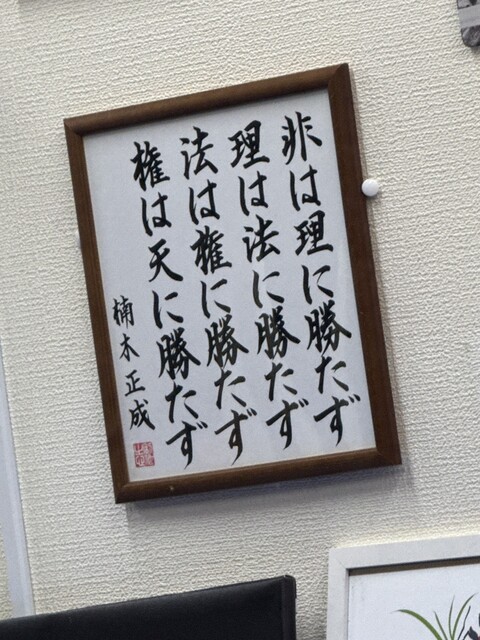 非は理に勝たず
理は法に勝たず
法は権に勝たず
権は天に勝たず
楠木正成